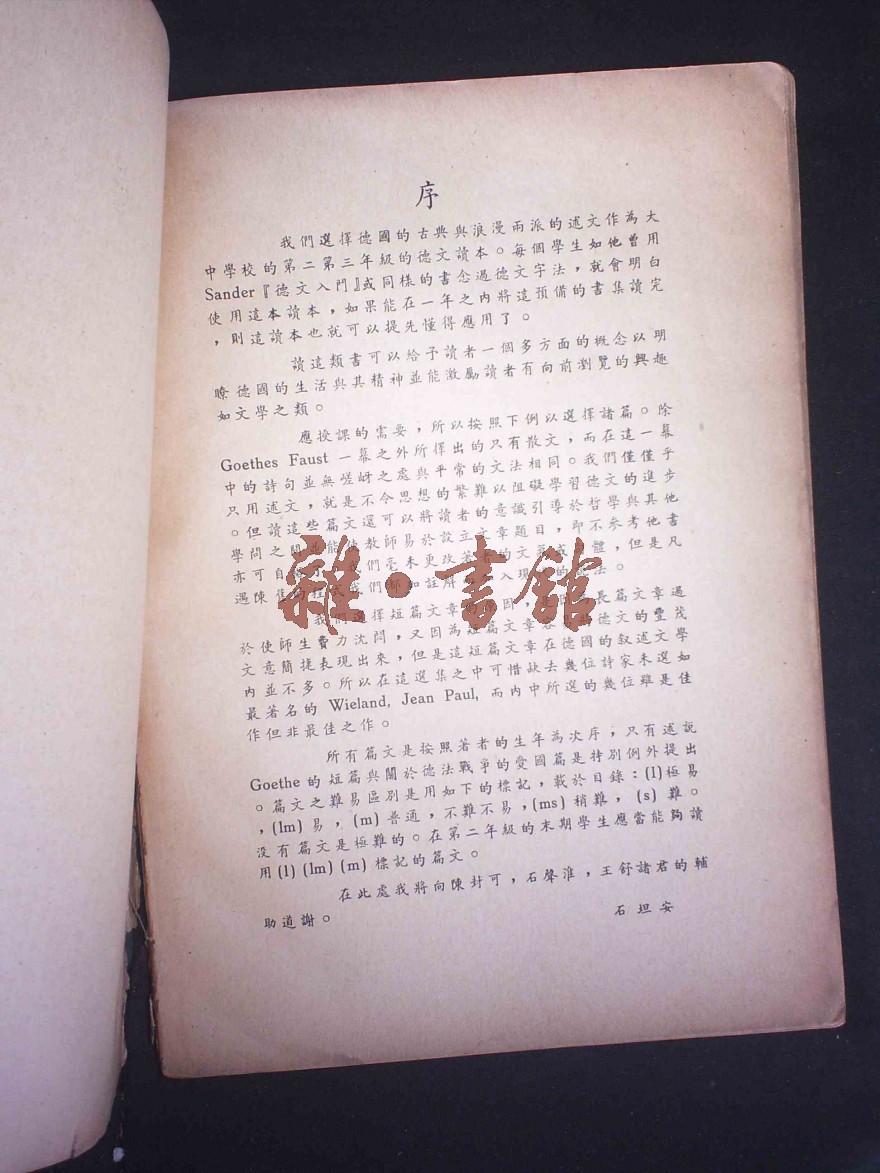 序
我們選擇德國的古典與浪漫兩派的述文作為大
中學校的第二第三年級的德文讀本。每個學生如他曾用
Sander『德文入門』或同樣的書念過德文字法，就會明白
使用這本讀本，如果能在一年之內將這預備的書集讀完
，則這讀本也就可以提先懂得應用了。
讀這類書可以給予讀者一個多方面的概念以明
瞭德國的生活與其精神並能激勵讀者有向前瀏覽的興趣
如文學之類。
應授課的需要，所以按照下例以選擇諸篇。除
Goethes Faust 一幕之外所擇出的只有散文，而在這一幕
中的詩句並無嗟岈之處與平常的文法相同。我們僅僅乎
只用述文，就是不令思想的繁難以阻礙學習德文的進步
。但讀這些篇文還可以將讀者的意識引導於哲學與其他
學問之間並能使教師易於設立文章題目，即不參考他書
亦可自 我們毫未更改著 的文 或 體，但是凡
過陳舊 我們 加註解 入現 的 法。
我們選擇短篇文章 因， 長篇文章過
於使師生費力沈悶，又因為短篇文章容 德文的豐茂
文意簡捷表現出來，但是這短篇文章在德國的叙述文學
內並不多。所以在這選集之中可惜缺去幾位詩家未選如
最著名的 Wieland, Jean Paul, 而內中所選的幾位雖是佳
作但非最佳之作。
所有篇文是按照著者的生年為次序，只有述說
Goethe 的短篇與關於德法戰爭的愛國篇是特別例外提出
。篇文之難易區別是用如下的標記，載於目錄：(l)極易
，(lm) 易，(m) 普通，不難不易，(ms) 稍難，(s) 難。
没有篇文是極難的。在第二年級的末期學生應當能夠讀
用 (l) (lm) (m) 標記的篇文。
在此處我將向陳封可，石聲淮，王舒諸君的輔
助道謝。
石坦安
雜·書館